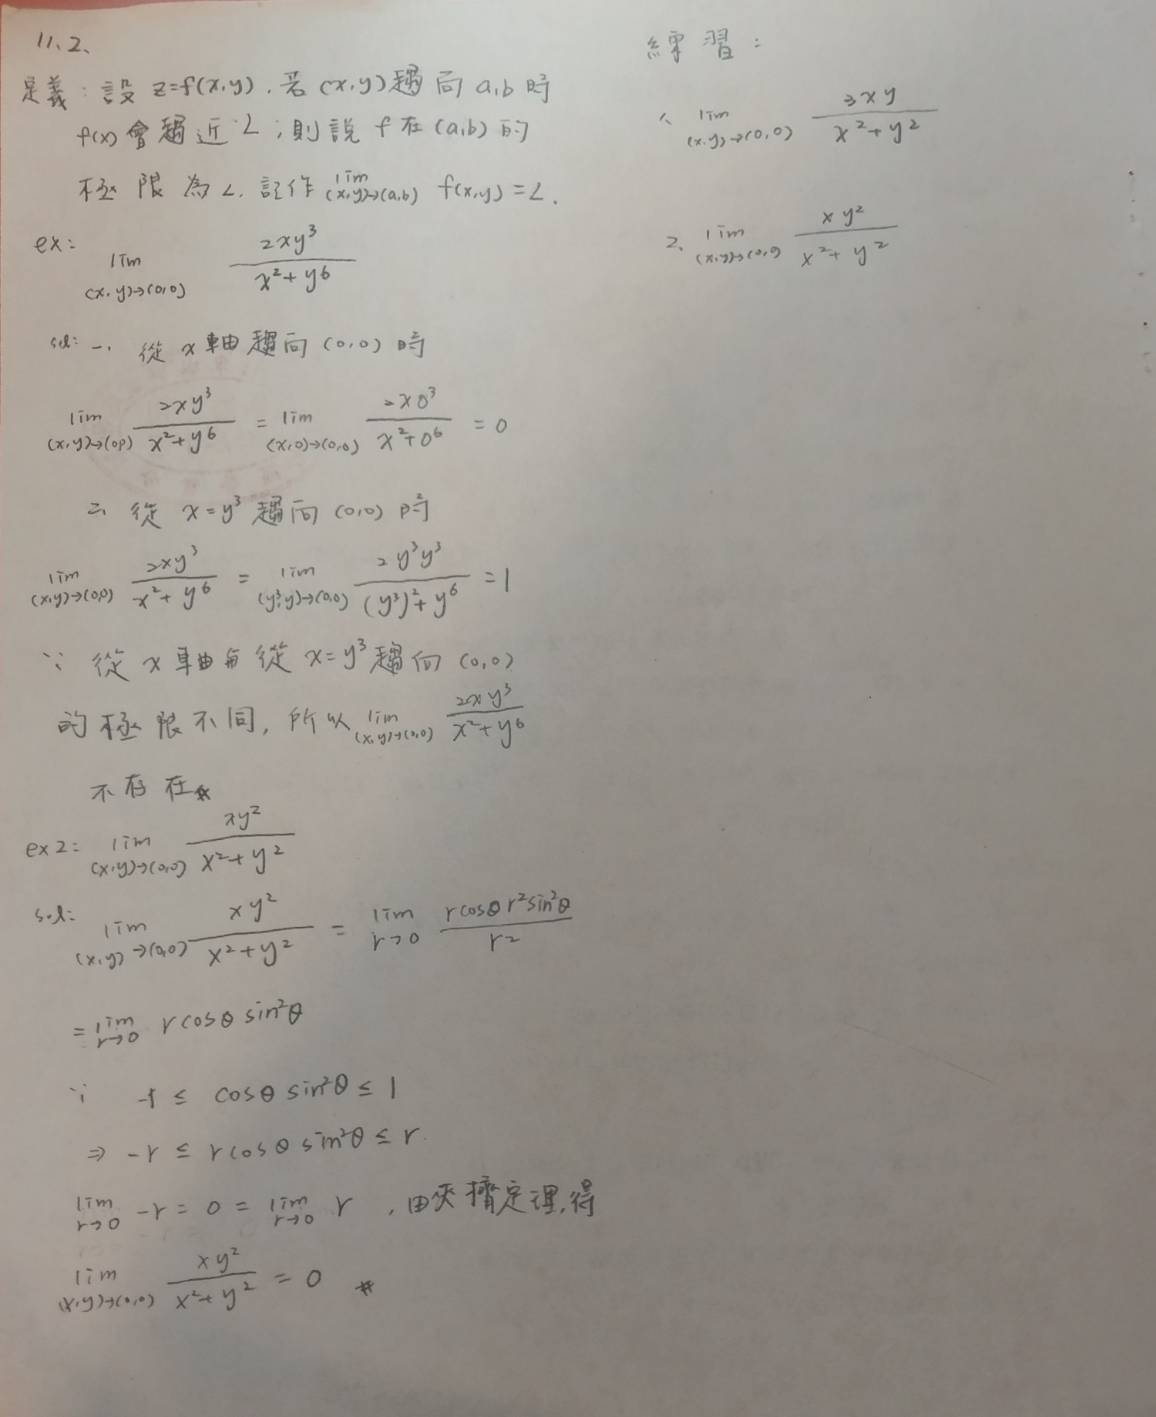 11.2、
定義：設 z=f(x,y)．若 (x,y)趨向 a,b 時
f(x) 會趨近 L；則說 f 在 (a,b) 的
極限為 L. 記作 lim (x,y)→(a,b) f(x,y) = L.
ex: lim (x,y)→(0,0) 2xy³/(x²+y⁶)
sol: 一、從 x 軸趨向 (0,0) 時
lim (x,y)→(0,0) 2xy³/(x²+y⁶) = lim (x,0)→(0,0) 2x0³/(x²+0⁶) = 0
二、從 x=y³ 趨向 (0,0) 時
lim (x,y)→(0,0) 2xy³/(x²+y⁶) = lim (y³,y)→(0,0) 2y³y³/((y³)²+y⁶) = 1
∵ 從 x 軸與從 x=y³ 趨向 (0,0)
的極限不同, 所以 lim (x,y)→(0,0) 2xy³/(x²+y⁶)
不存在#
ex2: lim (x,y)→(0,0) xy²/(x²+y²)
sol: lim (x,y)→(0,0) xy²/(x²+y²) = lim r→0 rcosθ r²sin²θ/r²
= lim r→0 rcosθ sin²θ
∵ -1 ≤ cosθ sin²θ ≤ 1
⇒ -r ≤ rcosθ sin²θ ≤ r
lim r→0 -r = 0 = lim r→0 r ，由夾擠定理,得
lim (x,y)→(0,0) xy²/(x²+y²) = 0 #
練習：
1、lim (x,y)→(0,0) 3xy/(x²+y²)
2、lim (x,y)→(0,0) xy²/(x²+y²)